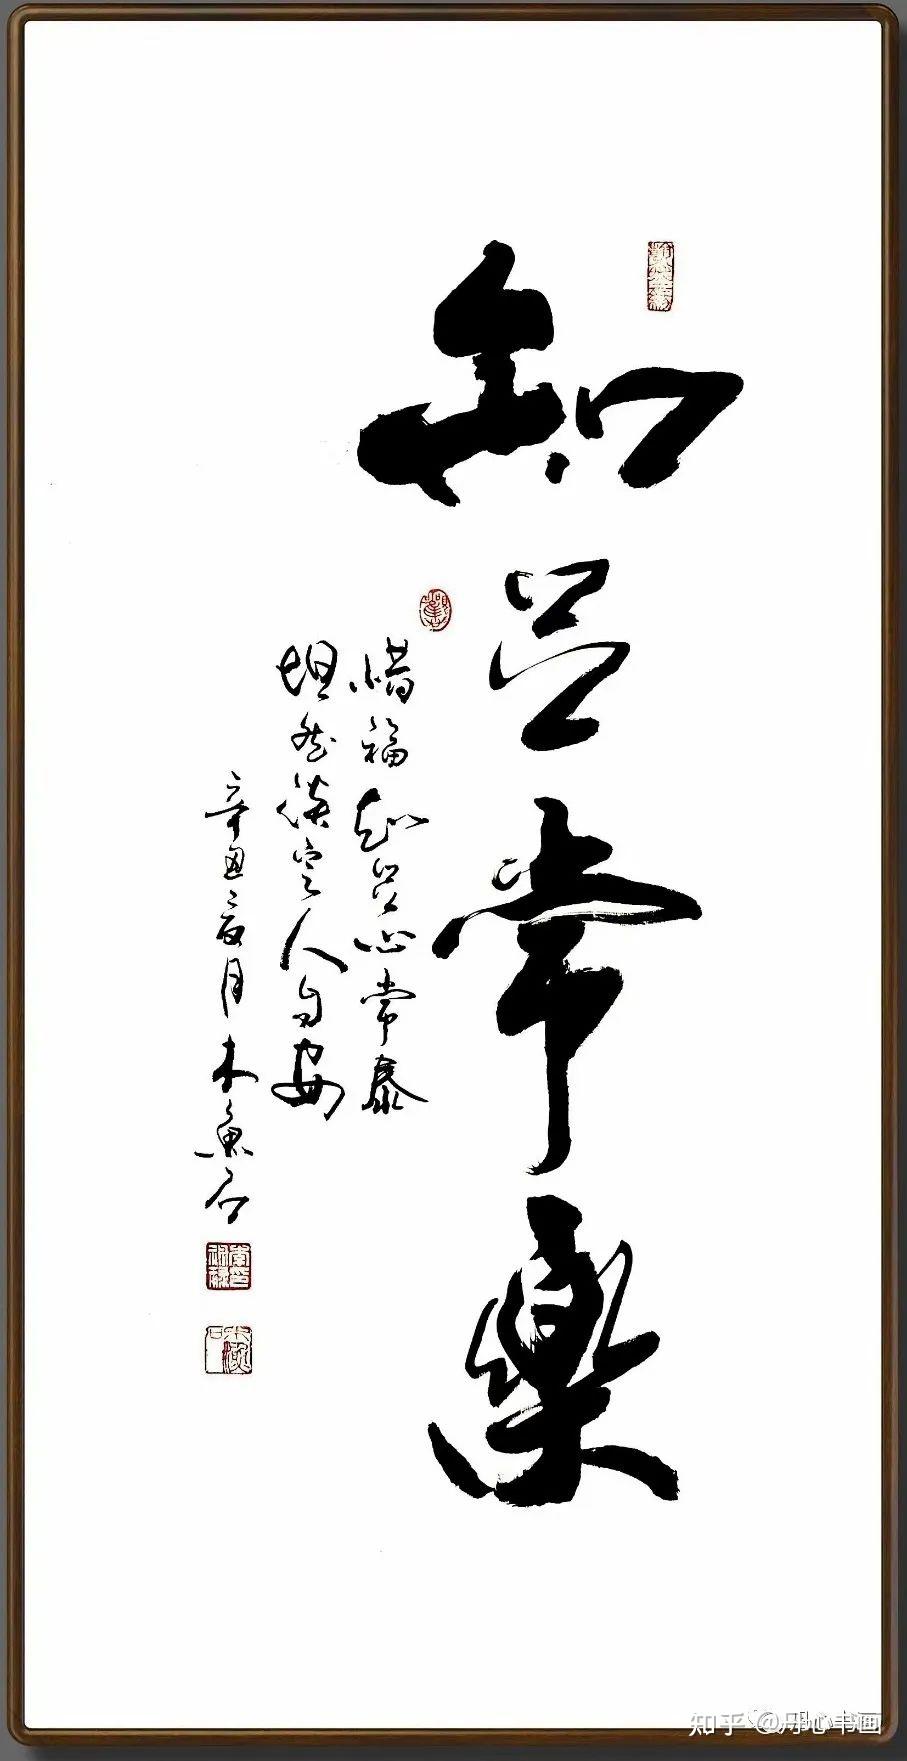 知足常樂
惜福知足心常泰
坦然淡定人自安
辛丑夏月木魚石
知乎 @丹心书画